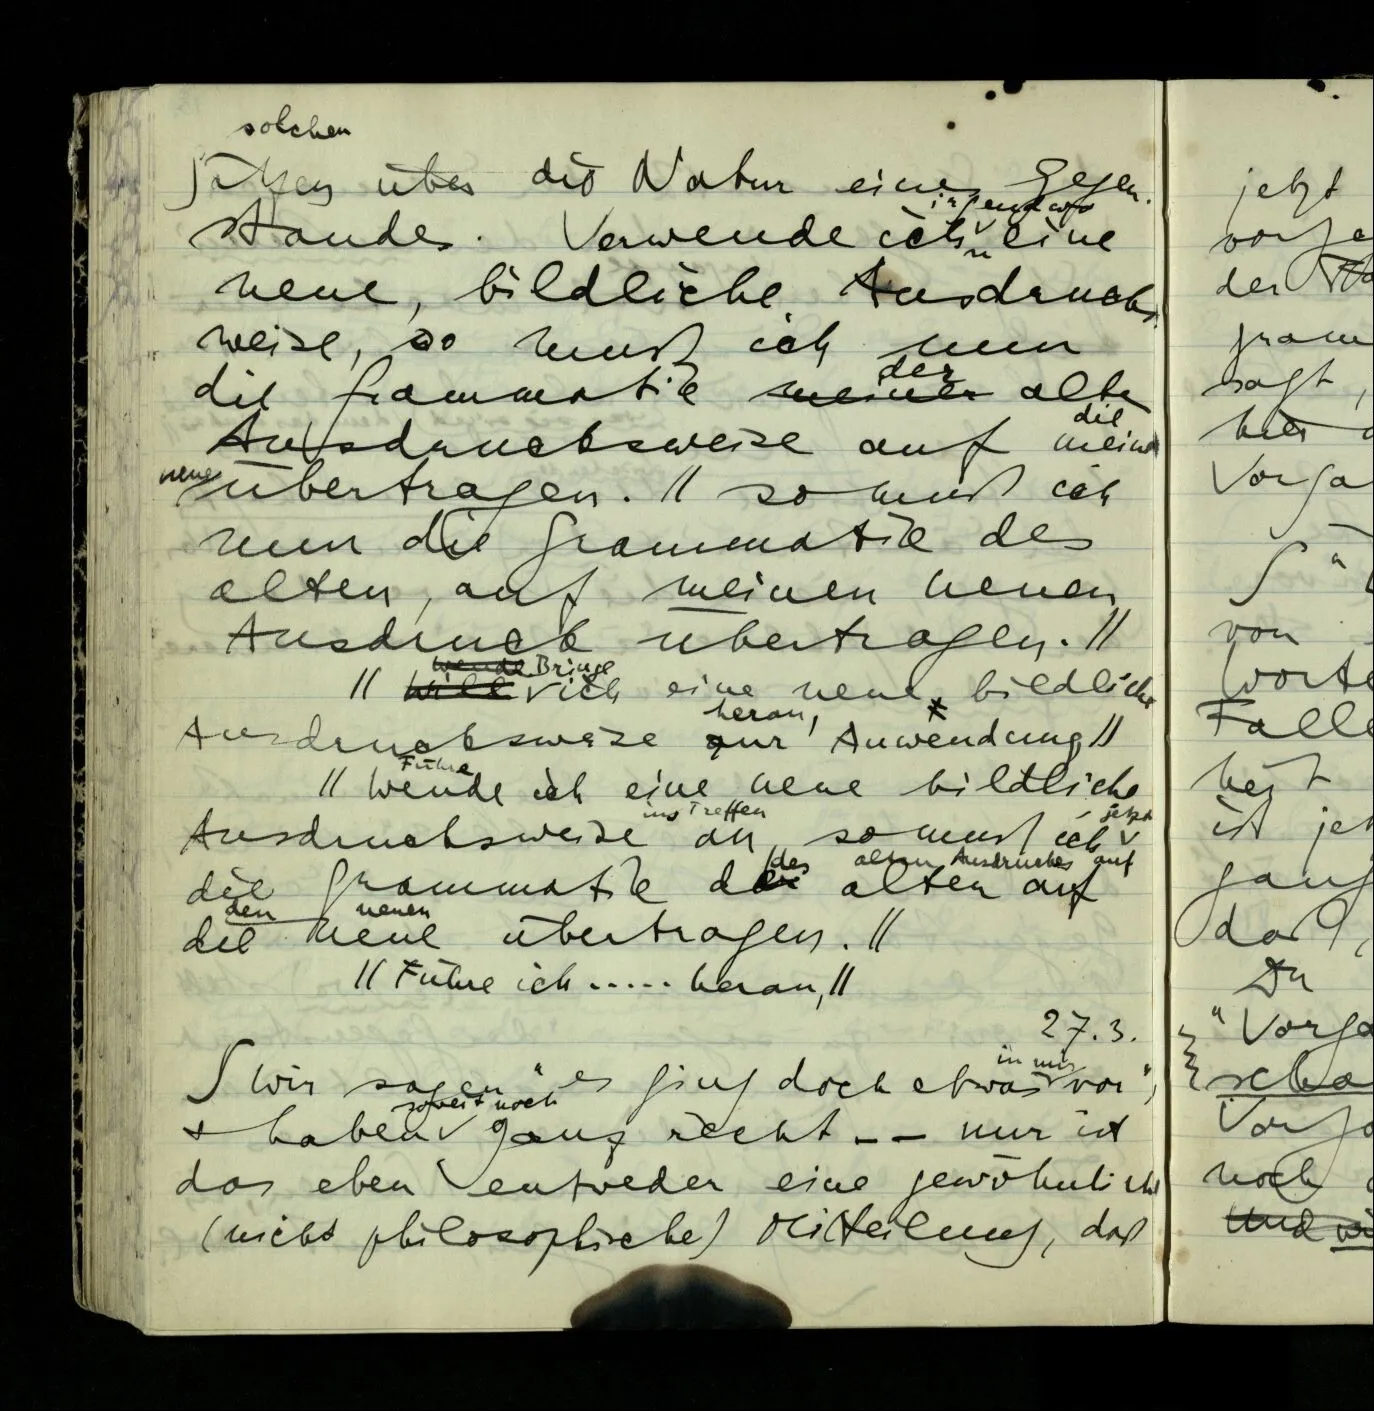 solchen
Sätzen über die Natur eines Gegen-
irgendwo
standes. Verwende ich eine
neue, bildliche Ausdrucks-
weise, so muß ich nun
der
die Grammatik meiner alten
die
Ausdrucksweise auf meine
neue übertragen. // so muß ich
nun die Grammatik des
alten, auf meinen neuen
Ausdruck übertragen. //
wende Bringe
// Will ich eine neue, bildliche
heran,
Ausdrucksweise zur Anwendung //
Führe
// Wende ich eine neue bildliche
ins Treffen jetzt
Ausdrucksweise an, so muß ich
des alten Ausdruckes auf
die Grammatik der alten auf
den neuen
die neue übertragen. //
// Führe ich ..... heran, //
27.3.
S Wir sagen "es ging doch etwas vor",
in mir
soweit noch
+ haben ganz recht -- nur ist
das eben entweder eine gewöhnliche
(nicht philosophische) Mitteilung, daß
jetzt
der
sagt,
hier
S "
von
Worte
Falle
ist
daß,
Du
"Vorga
scha
noch
Und wi